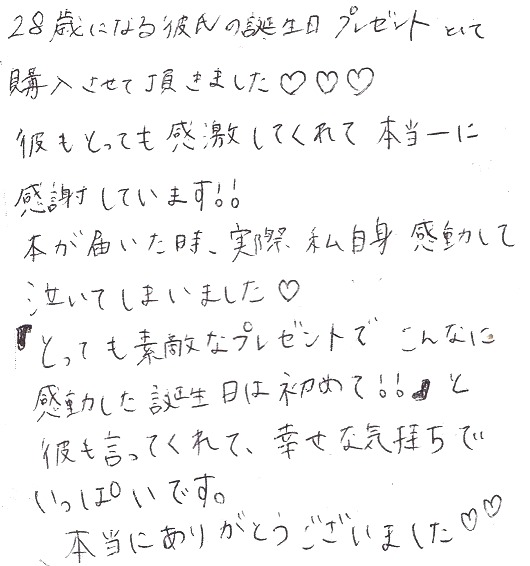 28歳になる彼氏の誕生日プレゼントとして
購入させて頂きました♡♡♡
彼もとっても感激してくれて本当ーに
感謝しています!!
本が届いた時、実際私自身感動して
泣いてしまいました♡
『とっても素敵なプレゼントでこんなに
感動した誕生日は初めて!!』と
彼も言ってくれて、幸せな気持ちで
いっぱいです。
本当にありがとうございました♡♡